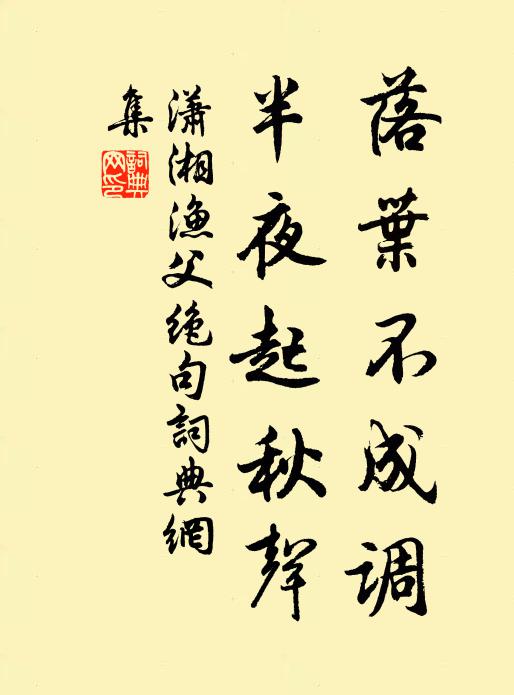 落葉不成调
半夜起秋聲
瀟湘漁父絶句詞典網
集
詞典網印